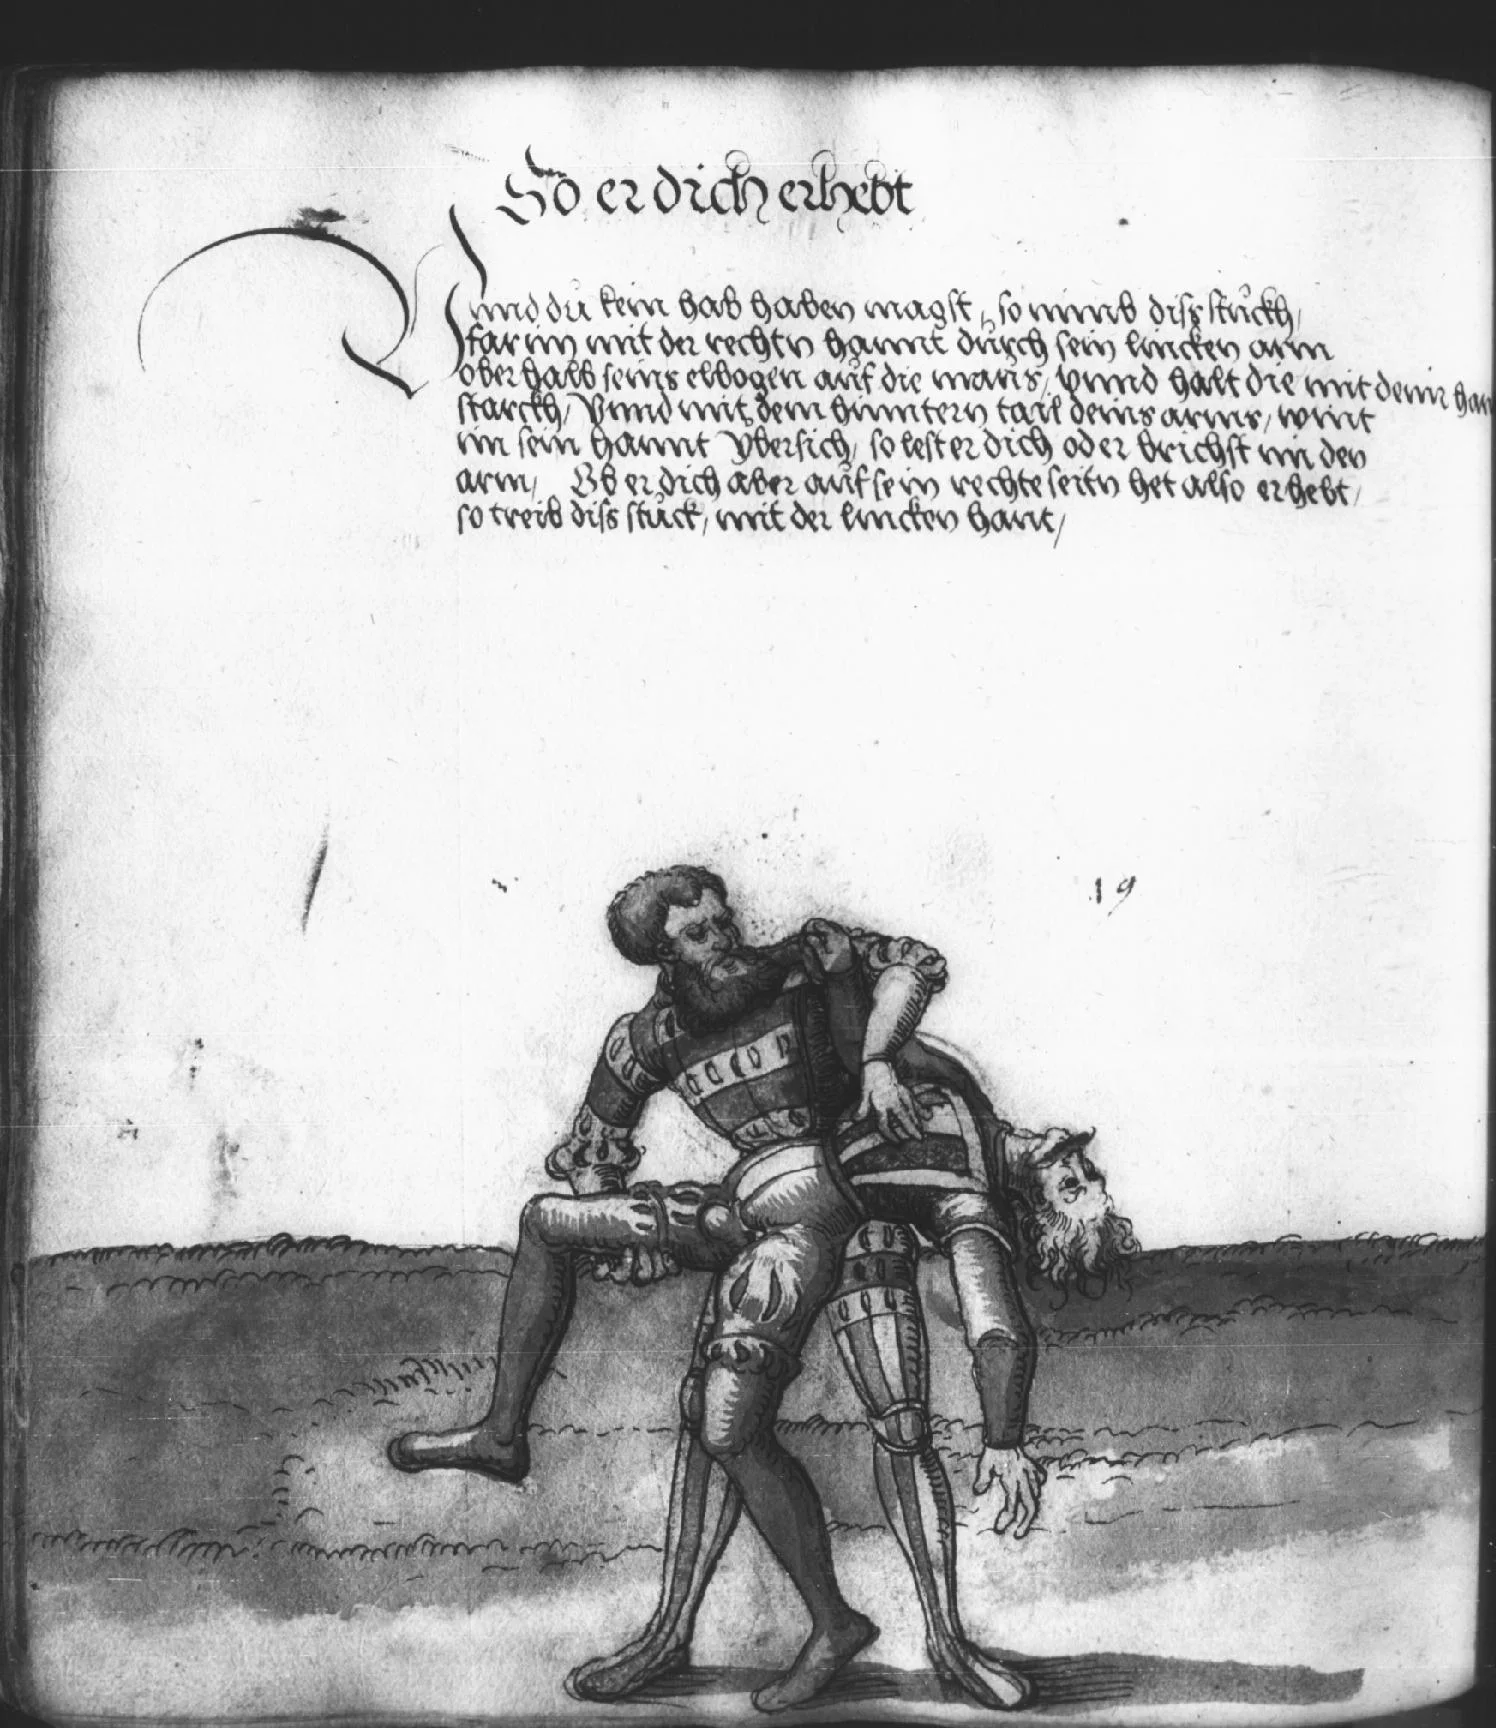 So er dich erhebt
Vnnd du kein hab haben magst, so nimb diss stuckh,
far im mit der rechtn hannt durch sein lincken arm
oberhalb seins elbogen auf die maus, vnnd halt die mit deinr han
starckh, Vnnd mit dem hinntern tail deins arms, wint
im sein hannt ybersich, so lest er dich oder brichst im den
arm, Ob er dich aber auf sein rechte seitn het also erhebt,
so treib diss stuck, mit der lincken hant,
19